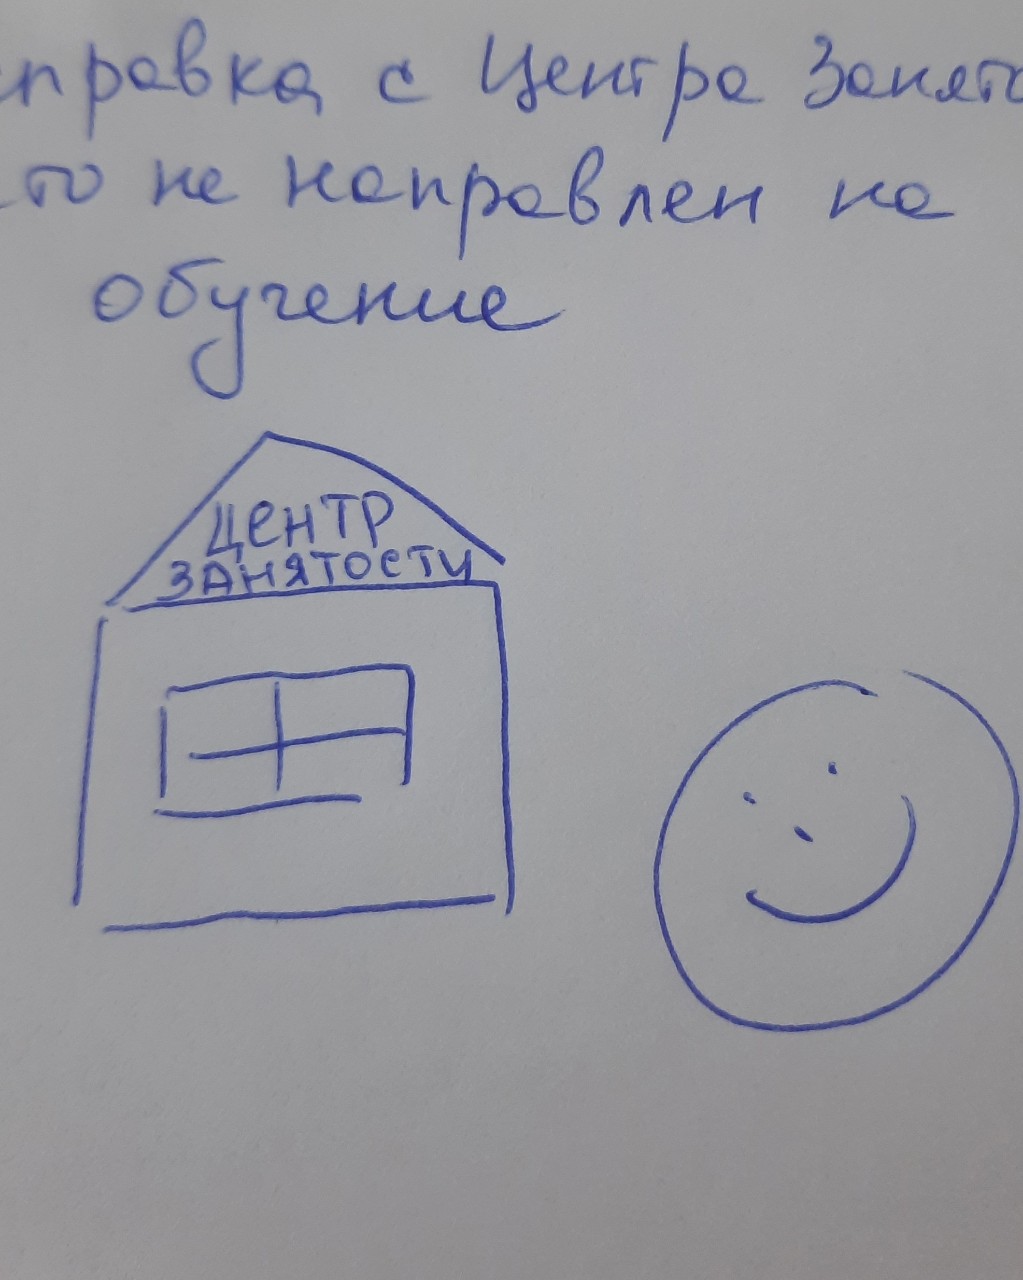 справка с Центра Занято
что не направлен на
обучение
ЦЕНТР
ЗАНЯТОСТИ